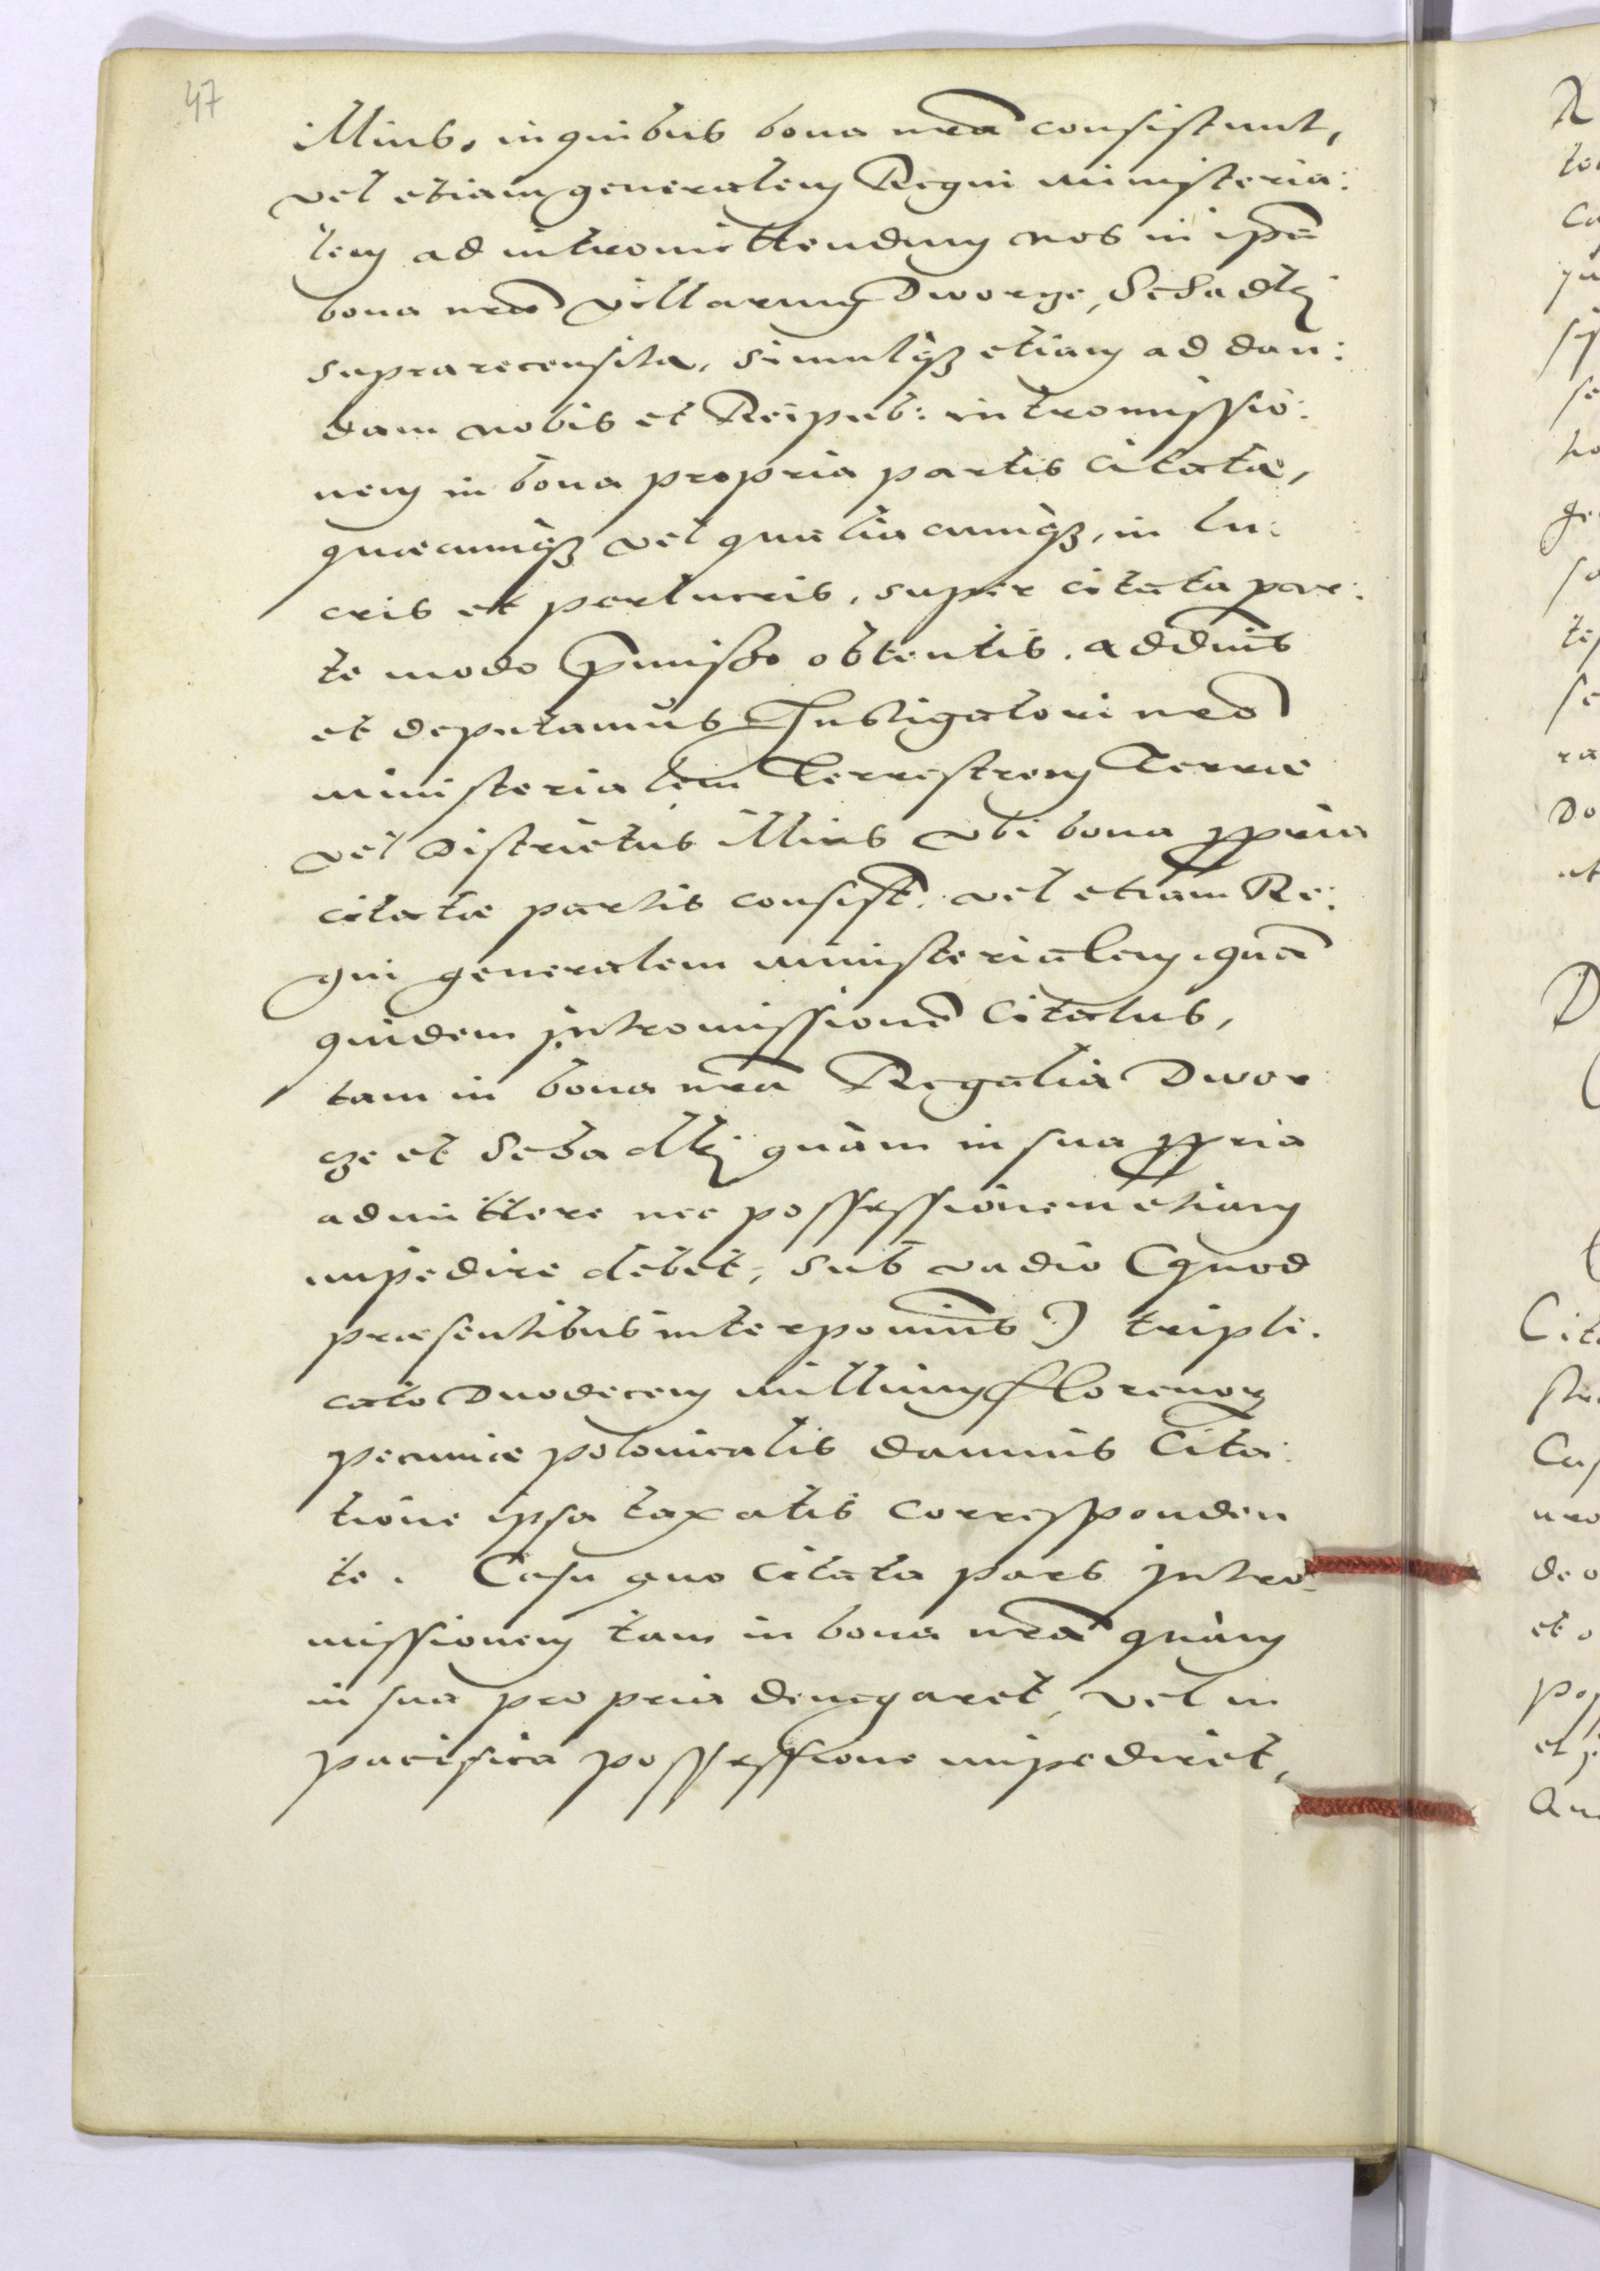 47
illius, in quibus bona nr̃a consistunt,
vel etiam generalem Regni ministeria:
lem ad intromittendum nos in ip̃a
bona nr̃a villarum Dworze, Sebadli
supra recensita, simulq₃ etiam ad dan:
dam nobis et Reipub: intromissio:
nem in bona propria partis Citatæ,
quæcumq₃ vel qualiacumq₃, in lu:
cris et perlucris, super citata par:
te modo p̃misso obtentis. addim̃s
et deputamus Instigatori nr̃o
ministerialem Terrestrem Terræ
vel Districtus illius vbi bona ꝓpria
citatæ partis consist̃. vel etiam Re:
gni generalem ministerialem, quã
quidem jntromissionẽ Citatus,
tam in bona nr̃a Regalia Dwor
ze et Sebadli quàm in sua ꝓpria
admittere nec possessionem etiam
impedire debet, sub vadio (quod
præsentibus interponim̃s) tripli.
cato Duodecem millium florenoꝝ
pecuniæ polonicalis damnis Cita:
tione ipsa taxatis corresponden
te. Casu quo Citata pars jntro:
missionem tam in bona nr̃a quàm
in sua propria denegaret, vel in
pacifica possessione impediret,